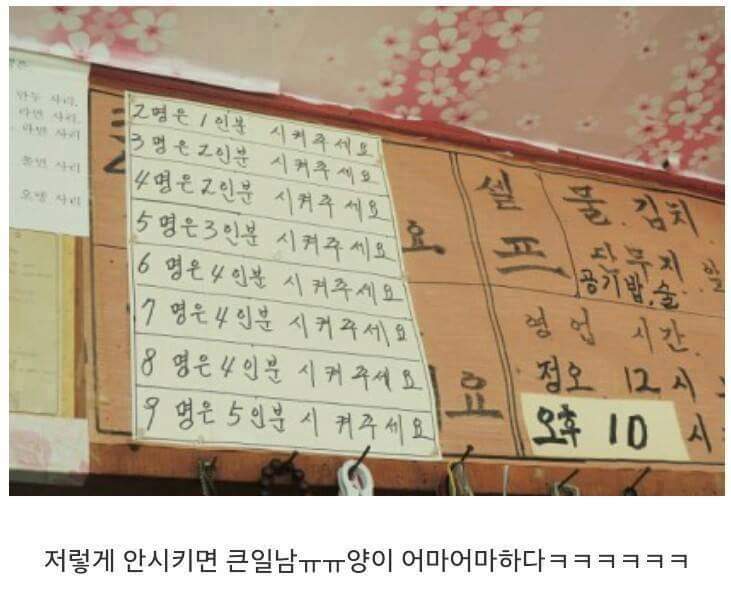 만두 사리.
라면 사리.
라면 사리
쫄면 사리
오뎅 사리
2명은 1인분 시켜주세요
3명은 2인분 시켜주세요
4명은 2인분 시켜주세요
5명은 3인분 시켜주세요
6명은 4인분 시켜주세요
7명은 4인분 시켜주세요
8명은 4인분 시켜주세요
9명은 5인분 시켜주세요
요.
요
셀프
물. 김치.
단무지
공기밥, 술
영업 시간.
정오 12시
오후 10시
저렇게 안시키면 큰일남ㅠㅠ양이 어마어마하다ㅋㅋㅋㅋㅋㅋ